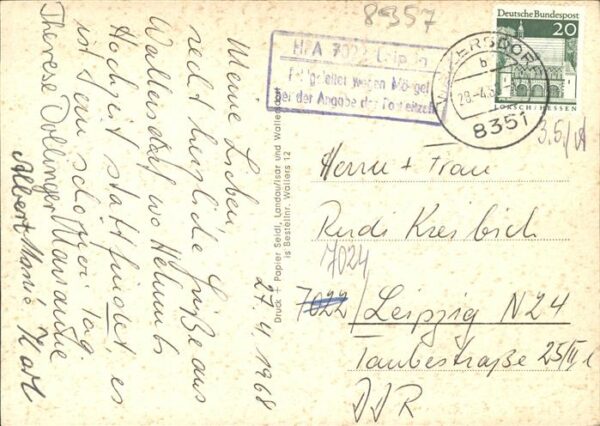 8357
Deutsche Bundespost
20
LORSCH/HESSEN
WALLERSDORF
b
28.-4.6
8351
HPA 7022 Leipzig
Fehlgeleitet wegen Mängel
bei der Angabe der Postleitzahl
3.5./
Meine Lieben
recht herzliche Grüße aus
Wallersdorf wo Helmuts
Hochzeit stattfindet, es
ist ein schöner Tag
Therese Dollinger Marianne
Albert Maria Karl
27.4.1968
Druck + Papier Seidl, Landau/Isar und Wallersdorf
is Bestellnr. Wallers 12
Herrn + Frau
Rudi Kreibich
7024
7022 / Leipzig N24
Taubestraße 25/II
DDR